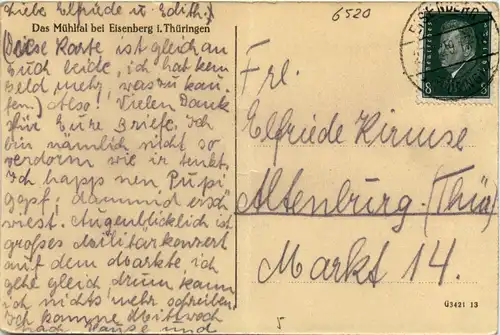 Liebe Elfriede u. Edith!
Das Mühltal bei Eisenberg i. Thüringen
(Diese Karte ist gleich an
Euch beide, ich hab kein
Geld mehr, was zu kau-
fen) Also! Vielen Dank
für Eure Briefe. Ich
bin nämlich nicht so
verdorm wie ir tenkt.
Ich happ nen Pupi
gopf; dammid
Augenblicklich ist
großes Militärkonzert
auf dem Markte, ich
gehe gleich drum kann
ich nichts mehr schreiben.
Ich komme Mittwoch
nach Hause und
6520
EISENBERG
8 8
Frl.
Elfriede Kirmse
Altenburg. (Thür.)
Markt 14.
Ü3421 13
5